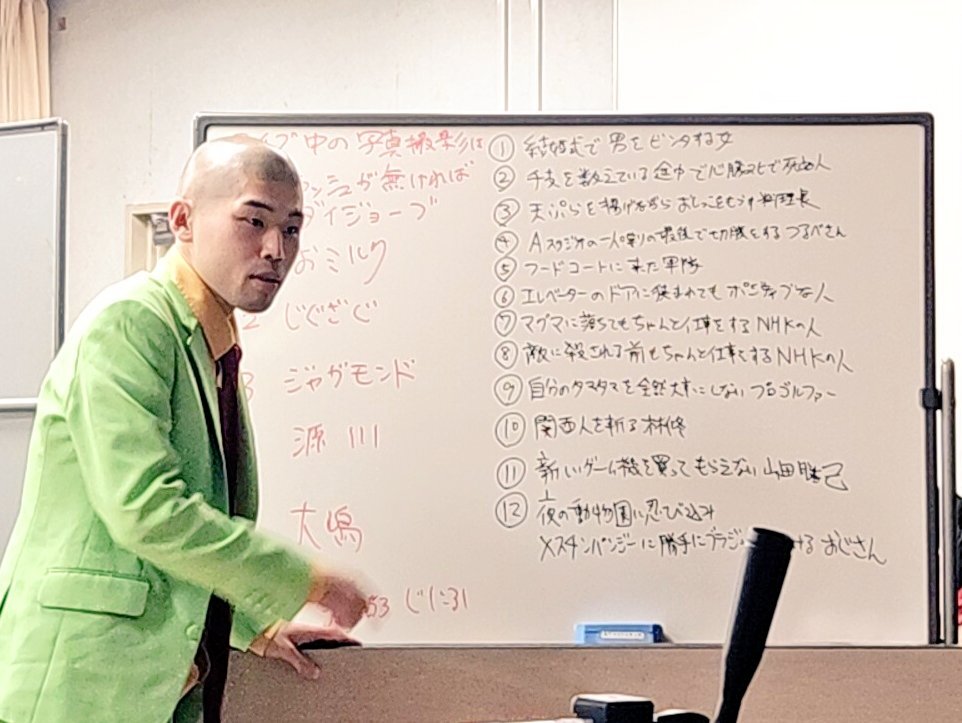 中の写真撮影は
が無ければ
ダイジョーブ
おミルク
じぐざぐ
ジャガモンド
源川
大嶋
53 じにふい
① 結婚式で男をビンタする女
② 干支を数えている途中で心臓マヒで死ぬ人
③ 天ぷらを揚げながらおしっこをもらす料理長
④ Aスタジオの一人喋りの最後で切腹をするつるべさん
⑤ フードコートに来た軍隊
⑥ エレベーターのドアに挟まれてもポジティブな人
⑦ マグマに落ちてもちゃんと仕事をするNHKの人
⑧ 敵に殺される前もちゃんと仕事をするNHKの人
⑨ 自分のタマタマを全然大事にしないプロゴルファー
⑩ 関西人を斬る林修
⑪ 新しいゲーム機を買ってもらえない山田勝己
⑫ 夜の動物園に忍び込み
メスチンパンジーに勝手にブラジ るおじさん